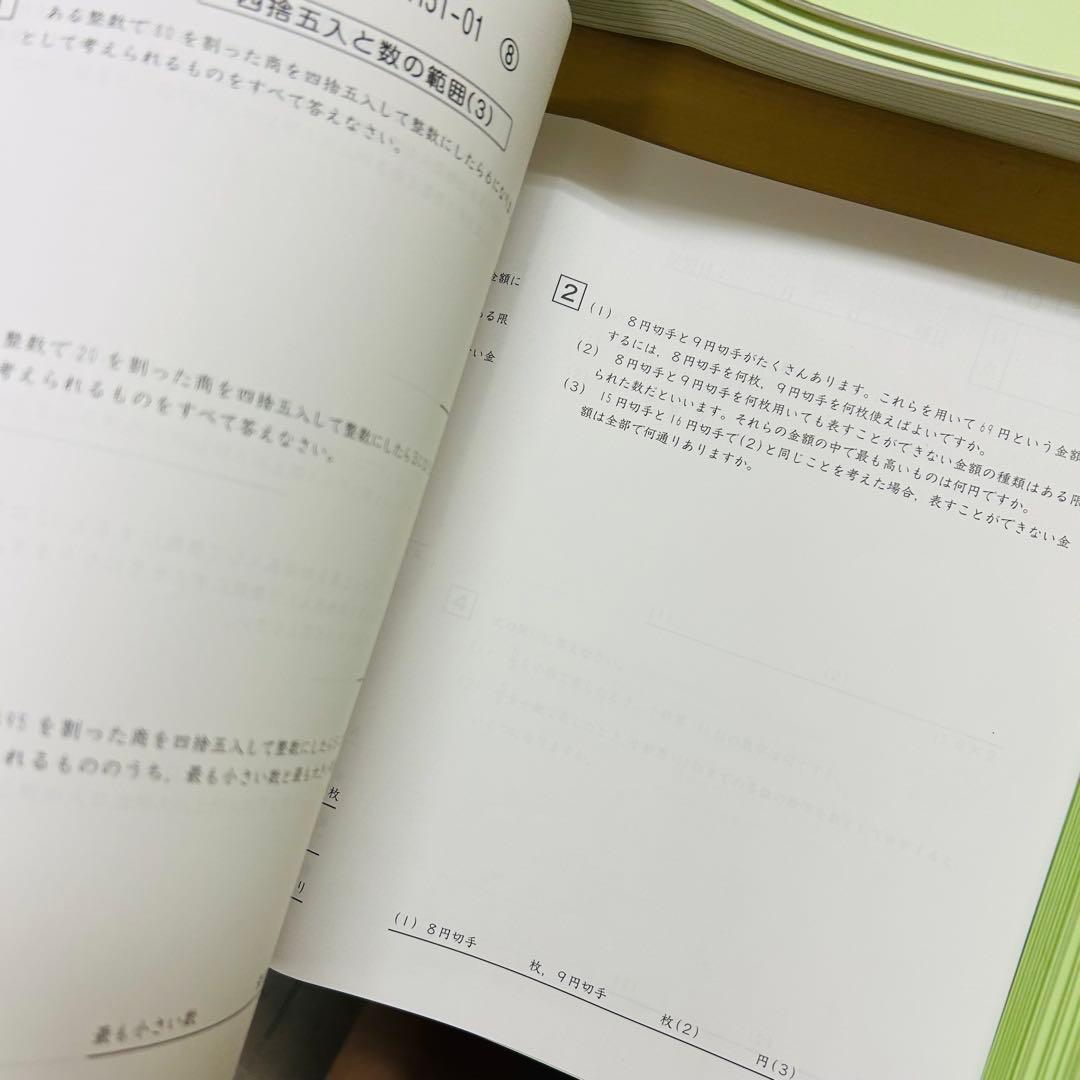 ⑧
四捨五入と数の範囲(3)
ある整数で80を割った商を四捨五入して整数にしたら6になりま
として考えられるものをすべて答えなさい。
整数で20を割った商を四捨五入して整数にしたら3にな
考えられるものをすべて答えなさい。
95を割った商を四捨五入して整数にしたら
れるもののうち，最も小さい数と最も大き
最も小さい数
金額に
る限
い金
枚
り
2
(1) 8円切手と9円切手がたくさんあります。これらを用いて69円という金額
するには，8円切手を何枚，9円切手を何枚使えばよいですか。
(2) 8円切手と9円切手を何枚用いても表すことができない金額の種類はある限
られた数だといいます。それらの金額の中で最も高いものは何円ですか。
(3) 15円切手と16円切手で(2)と同じことを考えた場合，表すことができない金
額は全部で何通りありますか。
(1) 8円切手 枚，9円切手 枚(2) 円(3)